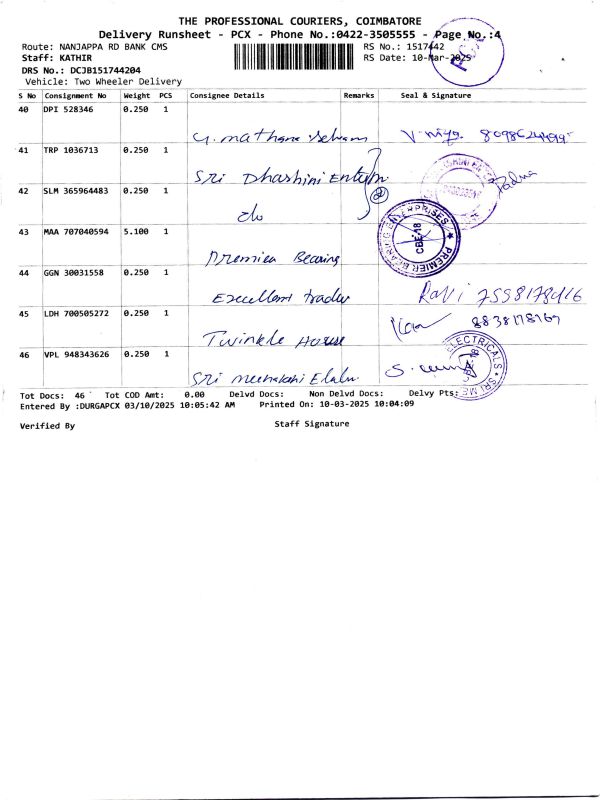 THE PROFESSIONAL COURIERS, COIMBATORE
Delivery Runsheet - PCX - Phone No.:0422-3505555 - Page No.:4
Route: NANJAPPA RD BANK CMS
RS No.: 1517442
Staff: KATHIR
RS Date: 10-Mar-2025
DRS No.: DCJB151744204
Vehicle: Two Wheeler Delivery
S No Consignment No Weight PCS Consignee Details Remarks Seal & Signature
40 DPI 528346 0.250 1
41 TRP 1036713 0.250 1
Sri Dhashini
42 SLM 365964483 0.250 1
43 MAA 707040594 5.100 1
Premier Bearing
PREMIER BEARING ENTERPRISES CBE-18
44 GGN 30031558 0.250 1
Excellent Trader Ravi 7598178416
45 LDH 700505272 0.250 1
Twinkle House 8838178167
46 VPL 948343626 0.250 1
Sri
ELECTRICALS
Tot Docs: 46 Tot COD Amt: 0.00 Delvd Docs: Non Delvd Docs: Delvy Pts:
Entered By :DURGAPCX 03/10/2025 10:05:42 AM Printed On: 10-03-2025 10:04:09
Verified By Staff Signature